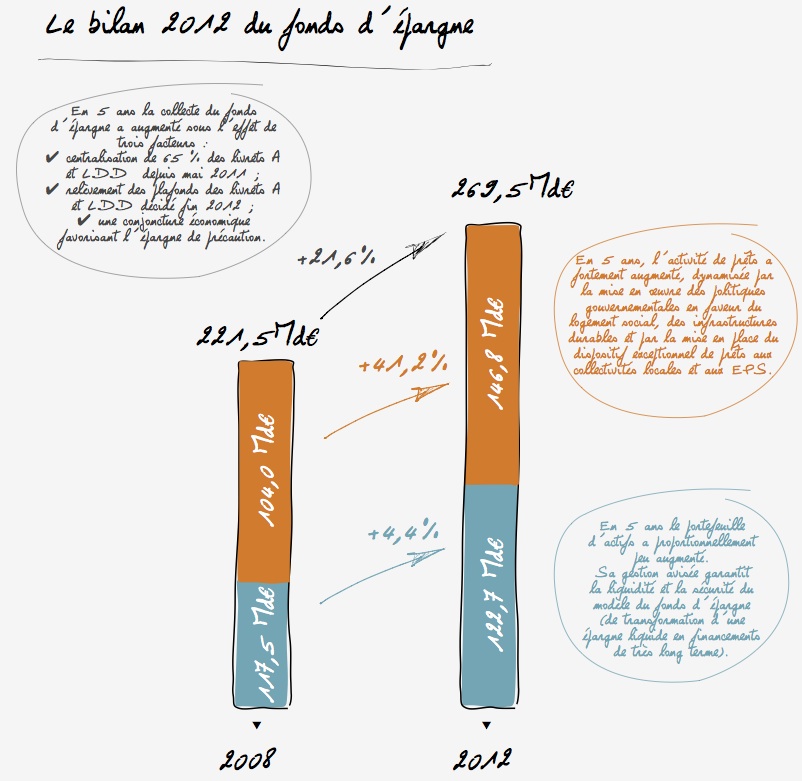 Le bilan 2012 du fonds d'épargne
En 5 ans la collecte du fonds
d'épargne a augmenté sous l'effet de
trois facteurs :
✔ centralisation de 65 % des livrets A
et LDD depuis mai 2011 ;
✔ relèvement des plafonds des livrets A
et LDD décidé fin 2012 ;
✔ une conjoncture économique
favorisant l'épargne de précaution.
269,5Md€
+21,6%
221,5Md€
+41,2%
146,8 Md€
104,0 Md€
En 5 ans, l'activité de prêts a
fortement augmenté, dynamisée par
la mise en œuvre des politiques
gouvernementales en faveur du
logement social, des infrastructures
durables et par la mise en place du
dispositif exceptionnel de prêts aux
collectivités locales et aux EPS.
+4,4%
122,7 Md€
117,5 Md€
En 5 ans le portefeuille
d'actifs a proportionnellement
peu augmenté.
Sa gestion avisée garantit
la liquidité et la sécurité du
modèle du fonds d'épargne
(de transformation d'une
épargne liquide en financements
de très long terme).
2008
2012